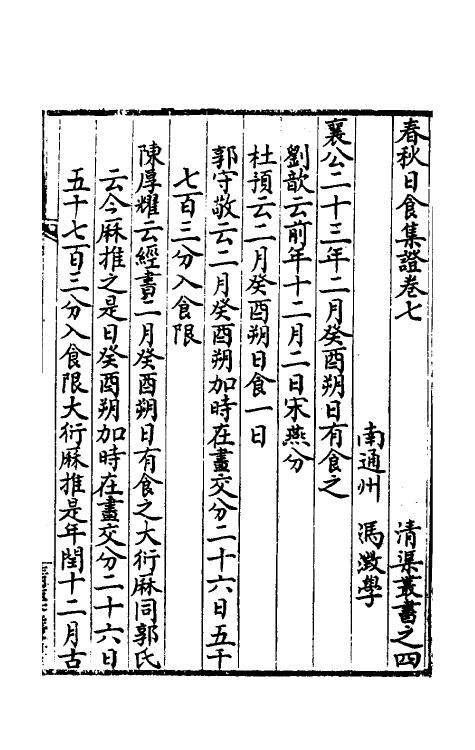 春秋日食集證卷七　清渠叢書之四
南通州　馮澂學
襄公二十三年二月癸酉朔日有食之
劉歆云前年十二月二日宋燕分
杜預云二月癸酉朔日食一日
郭守敬云二月癸酉朔加時在晝交分二十六日五千
七百三分入食限
陳厚耀云經書二月癸酉朔日有食之大衍厤同郭氏
云今厤推之是日癸酉朔加時在晝交分二十六日
五千七百三分入食限大衍厤推是年閏十二月古